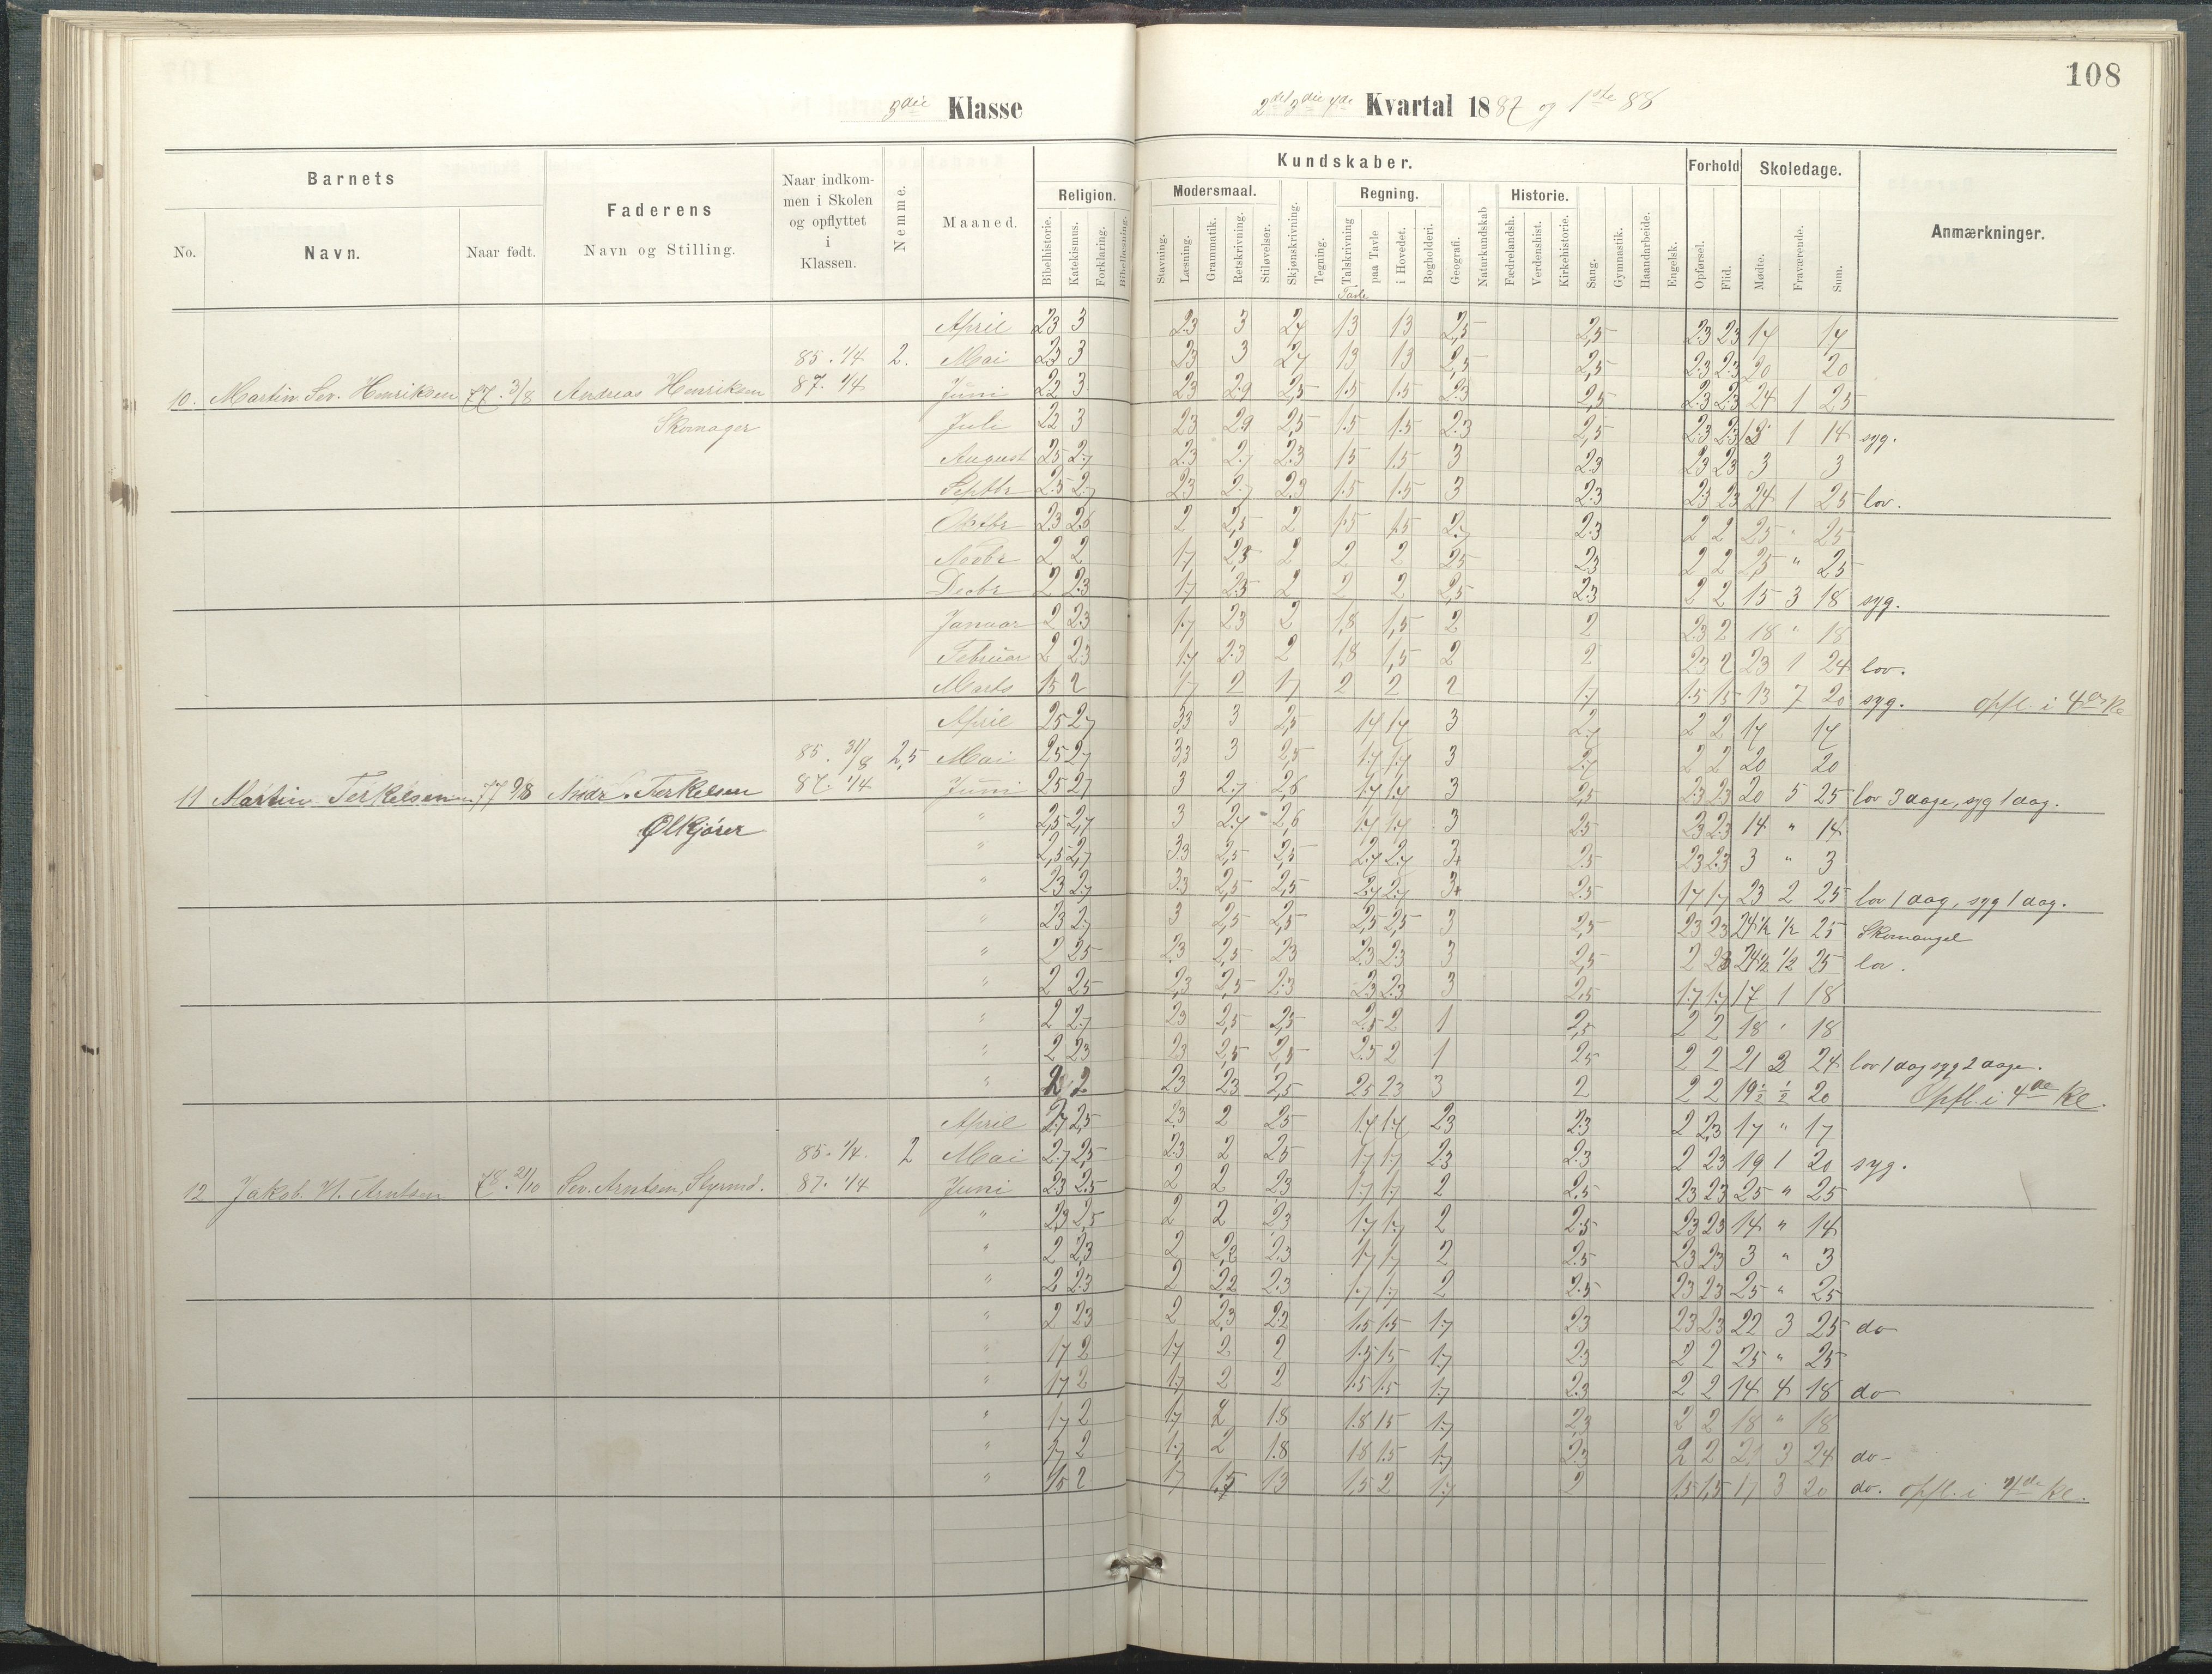 108
3die Klasse
2det 3die 4de Kvartal 1887 og 1ste 88
Barnets
Faderens
Naar indkom-
men i Skolen
og opflyttet
i
Klassen.
Nemme.
Maaned.
Religion.
Kundskaber.
Modersmaal.
Regning.
Historie.
Forhold
Skoledage.
Anmærkninger.
No.
Navn.
Naar født.
Navn og Stilling.
Bibelhistorie.
Katekismus.
Forklaring.
Bibellæsning.
Stavning.
Læsning.
Grammatik.
Retskrivning.
Stiløvelser.
Skjønskrivning.
Tegning.
Talskrivning
paa Tavle
i Hovedet.
Bogholderi.
Geografi.
Naturkundskab
Fædrelandsh.
Verdenshist.
Kirkehistorie.
Sang.
Gymnastik.
Haandarbeide.
Engelsk.
Opførsel.
Flid.
Mødte.
Fraværende.
Sum.
Tavle
April 23 3 2.3 3 2,7 13 13 2,5 2,5 2.3 23 17 17
85. 1/4 2. Mai 23 3 23 3 2,7 13 13 2,5 2,5 2.3 2.3 20 20
10. Martin Sev. Henriksen 77. 3/8 Andreas Henriksen 87. 1/4 Juni 22 3 23 2.9 2,5 1.5 1.5 2.3 2,5 2.3 2.3 24 1 25
Skomager Juli 22 3 23 29 2,5 1.5 1.5 2.3 2,5 23 2.3 13 1 14 syg.
August 25 2.7 2.3 2.7 2.3 15 1.5 3 2.3 23 23 3 3
Septbr 2.5 2.7 23 2.7 2.3 1.5 1.5 3 2.3 23 23 24 1 25 lov.
Oktbr 23 2.6 2 2,5 2 1.5 1.5 2.7 2.3 2 2 25 " 25
Novbr 2 2 1.7 2,5 2 2 2 25 23 2 2 25 " 25
Decbr 2 2.3 1.7 2.5 2 2 2 2,5 2.3 2 2 15 3 18 syg.
Januar 2 23 1.7 23 2 1,8 1,5 2 2 2.3 2 18 " 18
Februar 2 23 1.7 2.3 2 1,8 1,5 2 2 2.3 2 23 1 24 lov.
Marts 15 2 1.7 2 1.7 2 2 2 1.7 1.5 15 13 7 20 syg. opfl. i 4de Kl
April 25 27 3,3 3 2,5 1.7 1.7 3 2.7 2 2 17 17
85. 31/8 2,5 Mai 25 27 3,3 3 2,5 1.7 1.7 3 2.7 2 2 20 20
11 Martin Terkelsen 77 9/8 Andr. Terkelsen 87. 1/4 Juni 25 27 3 2.7 2,6 1.7 1.7 3 2,5 2.3 2.3 20 5 25 lov 3 dage, syg 1 dag.
Ølkjører " 2,5 2,7 3 2.7 2,6 1.7 1.7 3 25 23 2.3 14 " 14
" 2,5 2,7 33 2,5 2,5 2.7 2.7 3+ 2.5 23 2.3 3 " 3
" 23 2.7 3.3 2,5 2,5 2.7 2.7 3+ 2.5 17 17 23 2 25 lov 1 dag, syg 1 dag.
" 23 2.7 3 2,5 2,5 2,5 2,5 3 2,5 23 23 24 1/2 1/2 25 Skomangel
" 2 25 2.3 2,5 23 2.3 2.3 3 2,5 2 23 24 1/2 1/2 25 lov.
" 2 25 2,3 2,5 2.3 23 2.3 3 2,5 1.7 1.7 17 1 18
" 2 2.7 23 2,5 2,5 2.5 2 1 2,5 2 2 18 " 18
" 2 23 23 2,5 2,5 2.5 2 1 25 2 2 21 3 24 lov 1 dag syg 2 dage.
" 2 2 23 23 2,5 25 23 3 2 2 2 19 1/2 1/2 20 Opfl. i 4de Kl.
April 2.7 2,5 2.3 2 25 1.7 1.7 23 23 2 2,3 17 " 17
85. 1/4. 2 Mai 2.7 2,5 2.3 2 25 1.7 1.7 2.3 2.3 2 23 19 1 20 syg.
12 Jakob N. Arntsen 78. 21/10 Sev. Arntsen, Styrmd. 87. 1/4 Juni 23 2.5 2 2 23 1.7 1.7 2 2.5 23 23 25 " 25
" 23 2,5 2 2 23 1.7 1.7 2 2.5 23 23 14 " 14
" 2 2,3 2 2,2 2.3 1.7 1.7 2 2.5 23 23 3 " 3
" 2 2.3 2 22 2.3 1.7 1.7 2 2.5 23 23 25 " 25
" 2 23 2 2,3 2.2 1.5 1.5 1.7 23 23 23 22 3 25 do
" 17 2 1.7 2 2 1.5 15 1.7 2.3 2 2 25 " 25
" 17 2 1.7 2 2 1.5 1.5 1.7 2.3 2 2 14 4 18 do
" 1.7 2 1.7 2 18 1.8 15 1.7 2,3 2 2 18 " 18
" 1.7 2 1.7 2 1.8 18 1.5 1.7 2.3 2 2 21 3 24 do-
" 15 2 17 1.5 13 1,5 2 1.7 2 1,5 1,5 17 3 20 do. opfl. i 4de Kl.